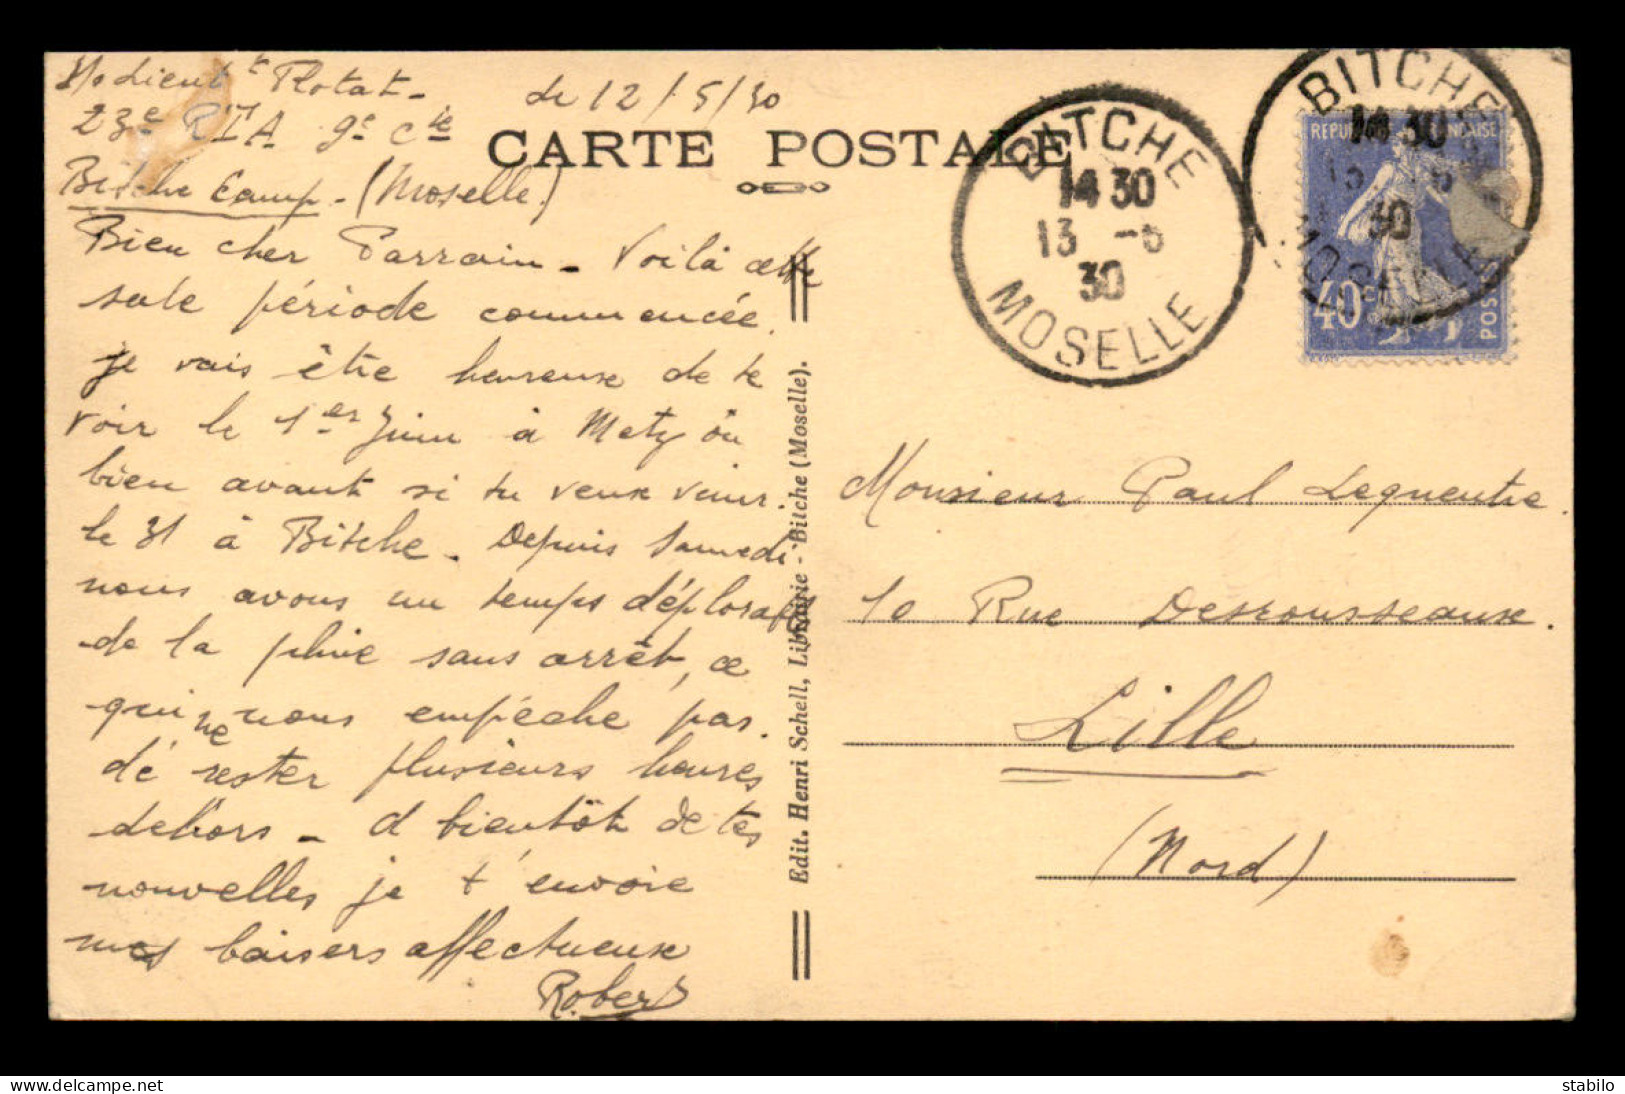 S/s Lieut^t Plotat -
23e RIA 9e Cie
Bitche Camp - (Moselle)
le 12/5/30
CARTE POSTALE
Bien cher Parrain - Voilà cette
sale période commencée.
je vais être heureuse de te
voir le 1er Juin à Metz où
bien avant si tu veux venir
le 31 à Bitche - Depuis Samedi
nous avons un temps déplorable
de la pluie sans arrêt, ce
qui ne nous empêche pas
dé rester plusieurs heures
dehors - A bientôt de tes
nouvelles je t'envoie
mes baisers affectueux
Robert
Edit. Henri Schell, Librairie - Bitche (Moselle).
BITCHE
14 30
13 -5
30
MOSELLE
BITCHE
14 30
13 -5
30
MOSELLE
REPUBLIQUE FRANCAISE
40c
POSTES
Monsieur Paul Lequentre.
10 Rue Desrousseaux.
Lille
(Nord)
stabilo